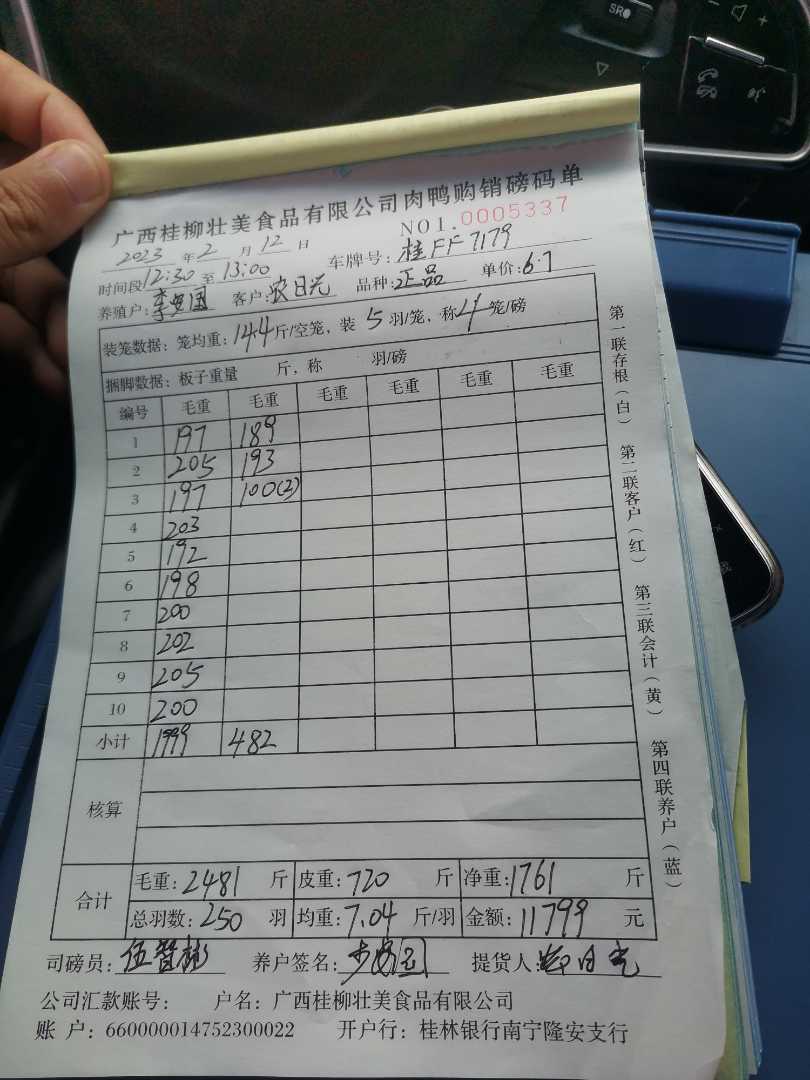 广西桂柳壮美食品有限公司肉鸭购销磅码单
NO1.0005337
2023 年 2 月 12 日
时间段 12:30 至 13:00 车牌号: 桂FF7179
养殖户: 李安国 客户: 农日光 品种: 正品 单价: 6.7
装笼数据: 笼均重: 14.4 斤/空笼, 装 5 羽/笼, 称 4 笼/磅
捆脚数据: 板子重量 斤, 称 羽/磅
编号 毛重 毛重 毛重 毛重 毛重 毛重
1 197 189
2 205 193
3 197 100(2)
4 203
5 192
6 198
7 200
8 202
9 205
10 200
小计 1999 482
核算
合计 毛重: 2481 斤 皮重: 720 斤 净重: 1761 斤
总羽数: 250 羽 均重: 7.04 斤/羽 金额: 11799 元
司磅员: 伍智彬 养户签名: 提货人:
公司汇款账号: 户名: 广西桂柳壮美食品有限公司
账 户: 660000014752300022 开户行: 桂林银行南宁隆安支行
第一联存根(白) 第二联客户(红) 第三联会计(黄) 第四联养户(蓝)
SRC